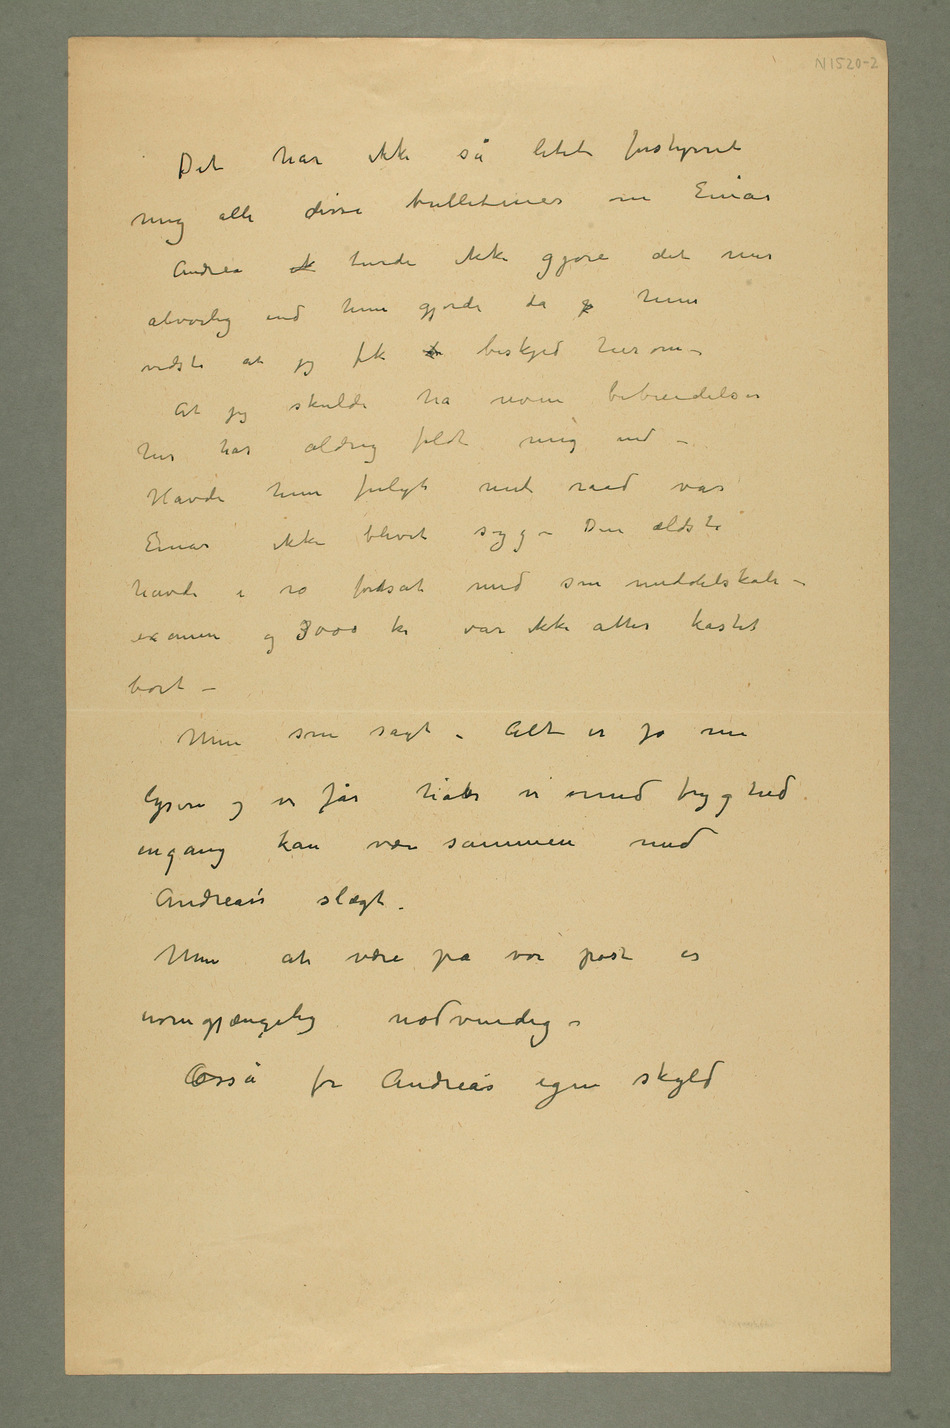 N 1520-2
Det har ikke så litet forstyrret
mig alle disse bulletiner om Einar
Andrea turde ikke gjøre det mer
alvorlig end hun gjorde da hun
vidste at jeg fik beskjed herom –
At jeg skulde ha noen bebreidelser
her har aldrig faldt mig ind –
Havde hun fulgt mit raad var
Einar ikke blivet syg – Den ældste
havde i ro fortsat med sin middelskole –
examen og 3000 kr var ikke atter kastet
bort –
Men som sagt – Alt er jo nu
lysere og vi får håbe vi med tryghed
engang kan være sammen med
Andreas slægt.
Men at være på vor post er
uomgjængelig nødvendig –
Også for Andreas egen skyld